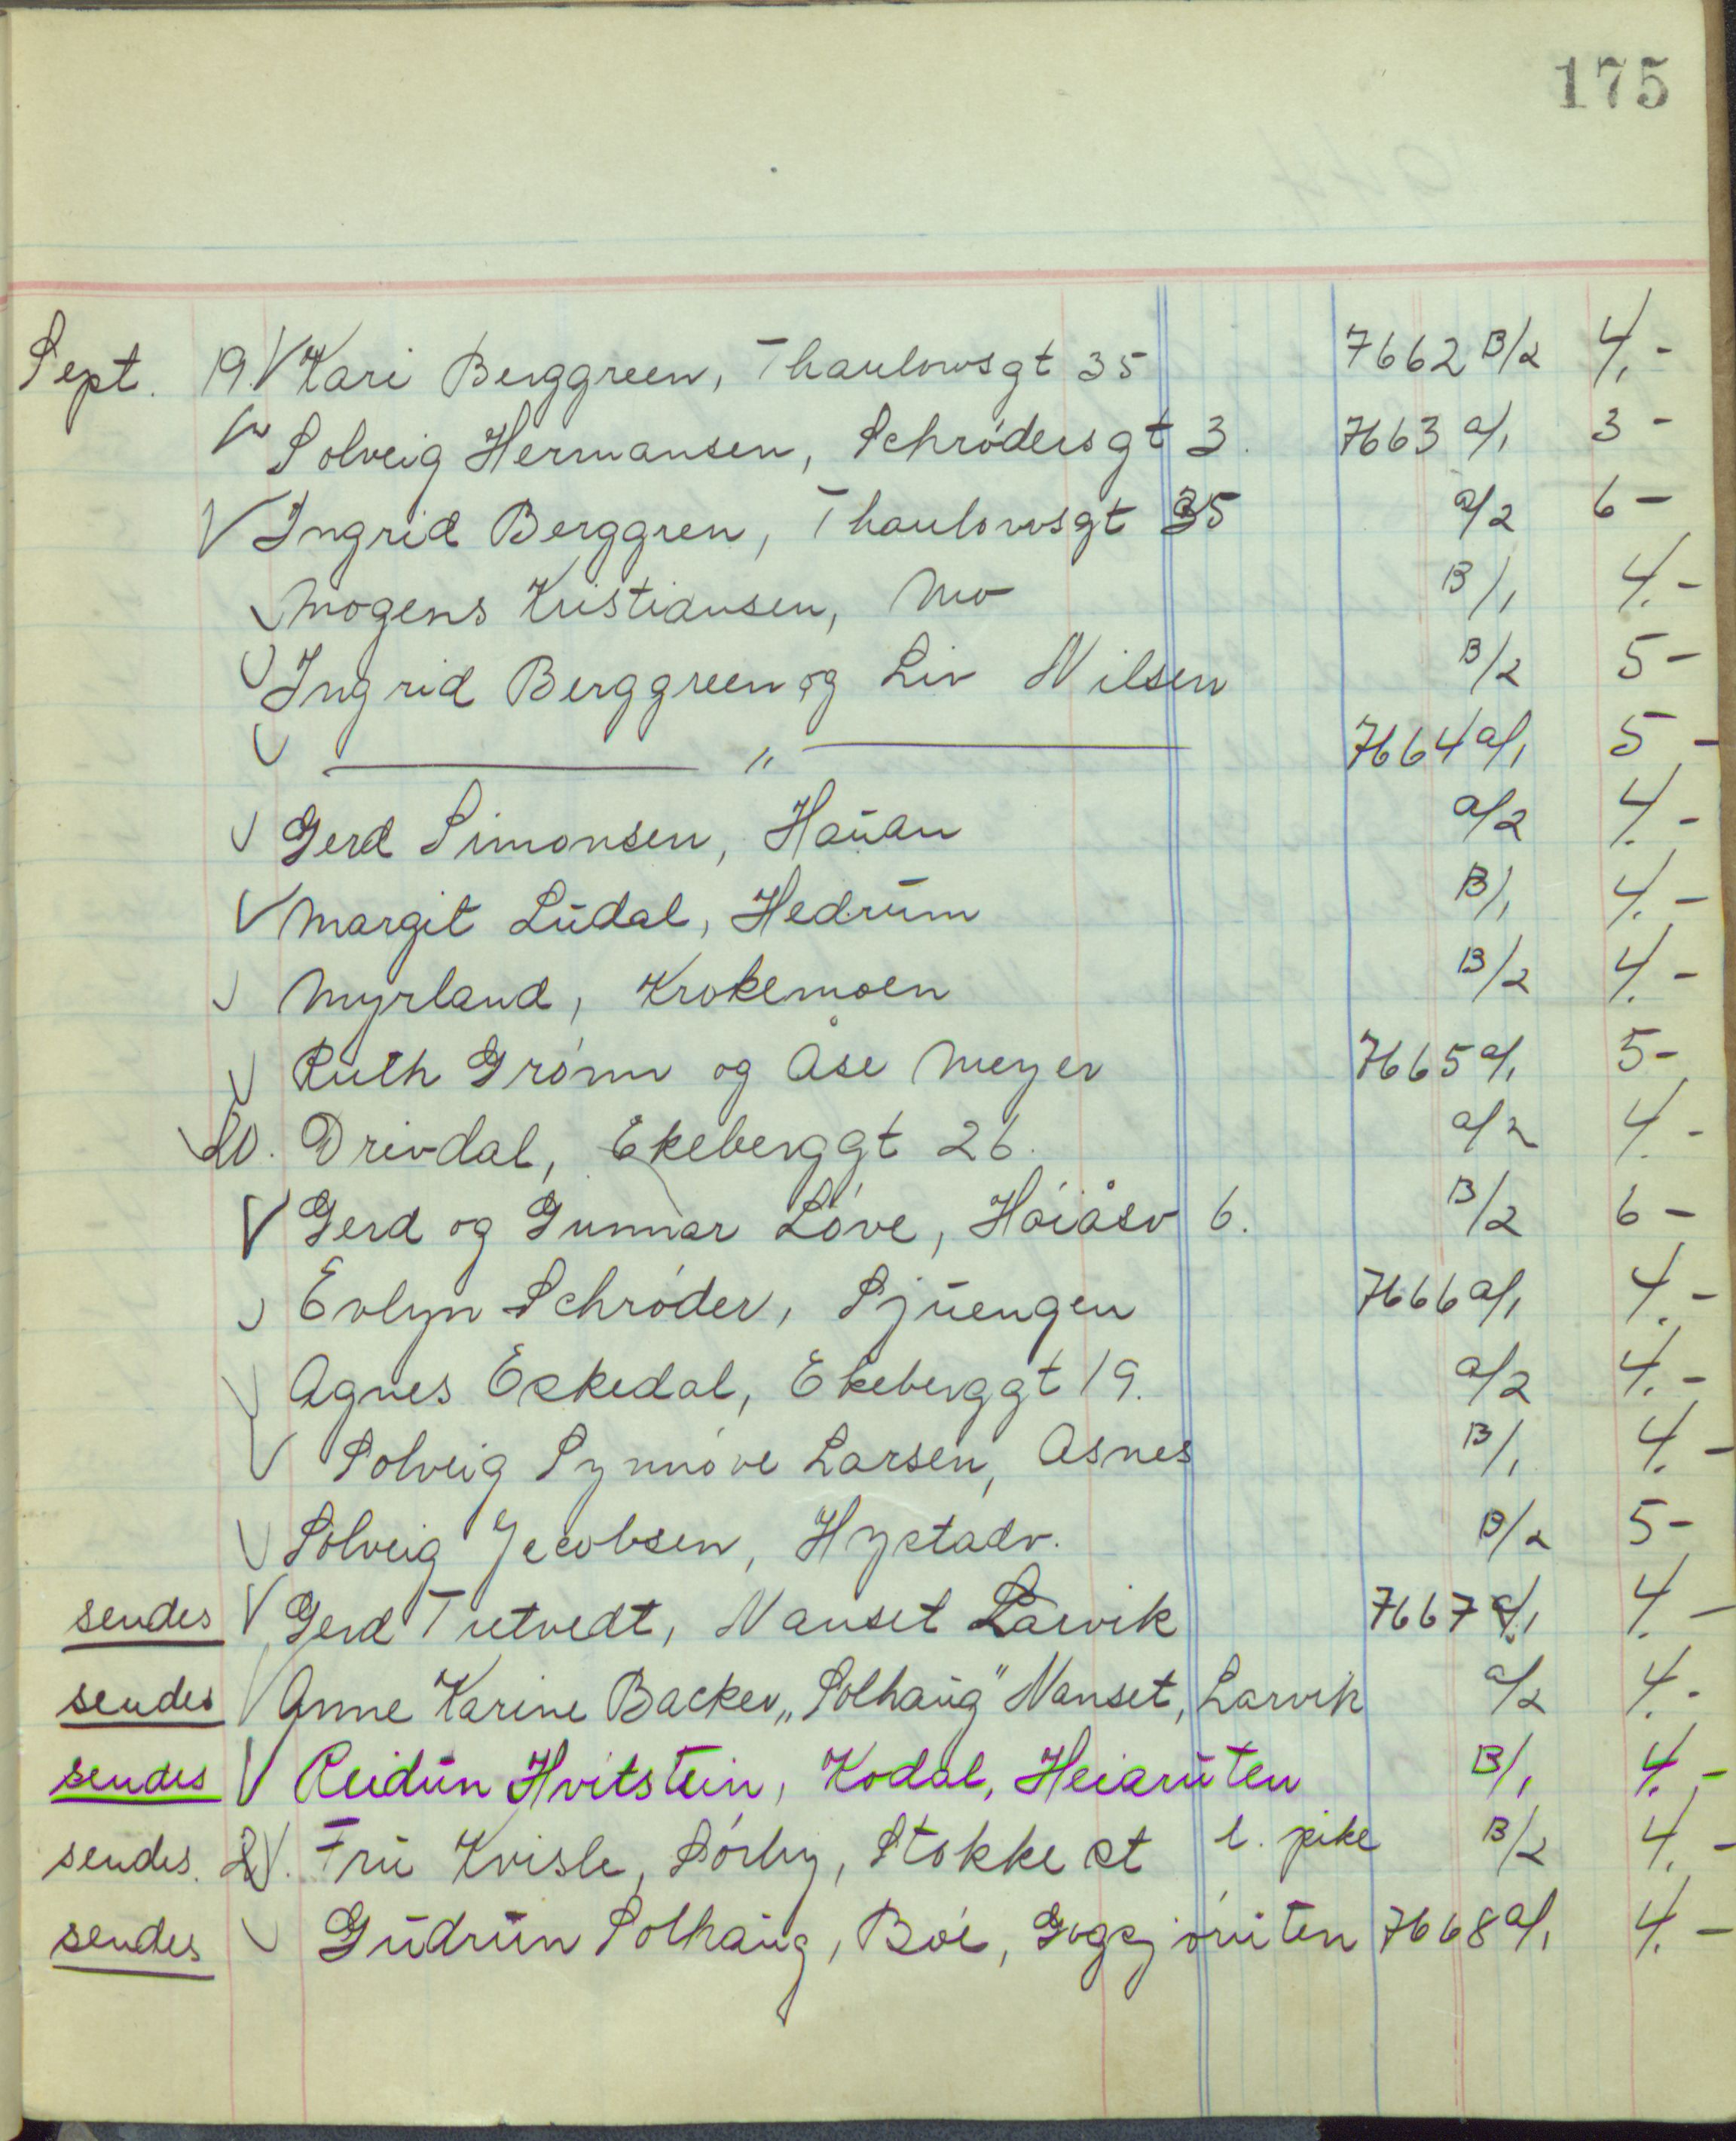 175
Sept. 19. V Kari Berggreen, Thaulowsgt 35 7662 B/2 4,-
V Solveig Hermansen, Schrødersgt 3. 7663 a/1 3 -
V Ingrid Berggren, Thaulowsgt 35 a/2 6 -
V Mogens Kristiansen, Mo B/1 4.-
V Ingrid Berggreen og Liv Nilsen B/2 5 -
V — " — 7664 a/1 5 -
V Gerd Simonsen, Hauan a/2 4.-
V Margit Ludal, Hedrum B/1 4.-
V Myrland, Krokemoen B/2 4.-
V Ruth Grønn og Åse Meyer 7665 a/1 5 -
V 20. Drivdal, Ekeberggt 26. a/2 4.-
V Gerd og Gunnar Løve, Høiåsv 6. B/2 6 -
V Evlyn Schrøder, Sjuengen 7666 a/1 4.-
V Agnes Eskedal, Ekeberggt 19. a/2 4.-
V Solveig Synnøve Larsen, Asnes B/1 4.-
V Solveig Jacobsen, Hystadv. B/2 5 -
sendes V Gerd Tutvedt, Nanset Larvik 7667 a/1 4. -
sendes V Anne Karine Backer „Solhaug" Nanset, Larvik a/2 4.-
sendes V Reidun Hvitstein, Kodal, Heiaruten B/1 4.-
sendes. V. Fru Kvisle, Sørby, Stokke st l. pike B/2 4.-
sendes V Gudrun Solhaug, Bøe, Gogsjøruten 7668 a/1 4.-